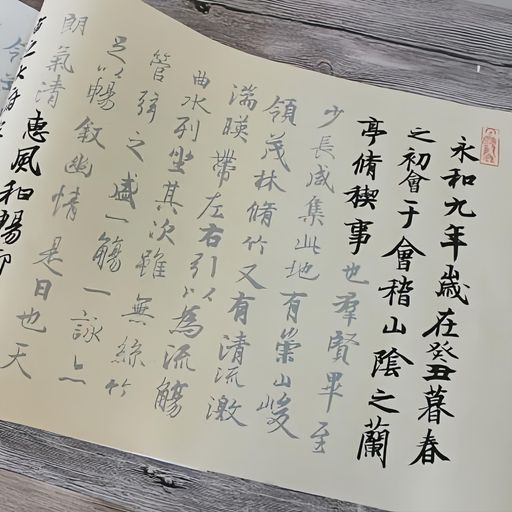 永和九年歲在癸丑暮春
之初會于會稽山陰之蘭
亭脩稧事也羣賢畢至
少長咸集此地有崇山峻
領茂林脩竹又有清流激
湍暎帶左右引以為流觴
曲水列坐其次雖無絲竹
管弦之盛一觴一詠亦
足以暢敘幽情是日也天
朗氣清惠風和暢仰